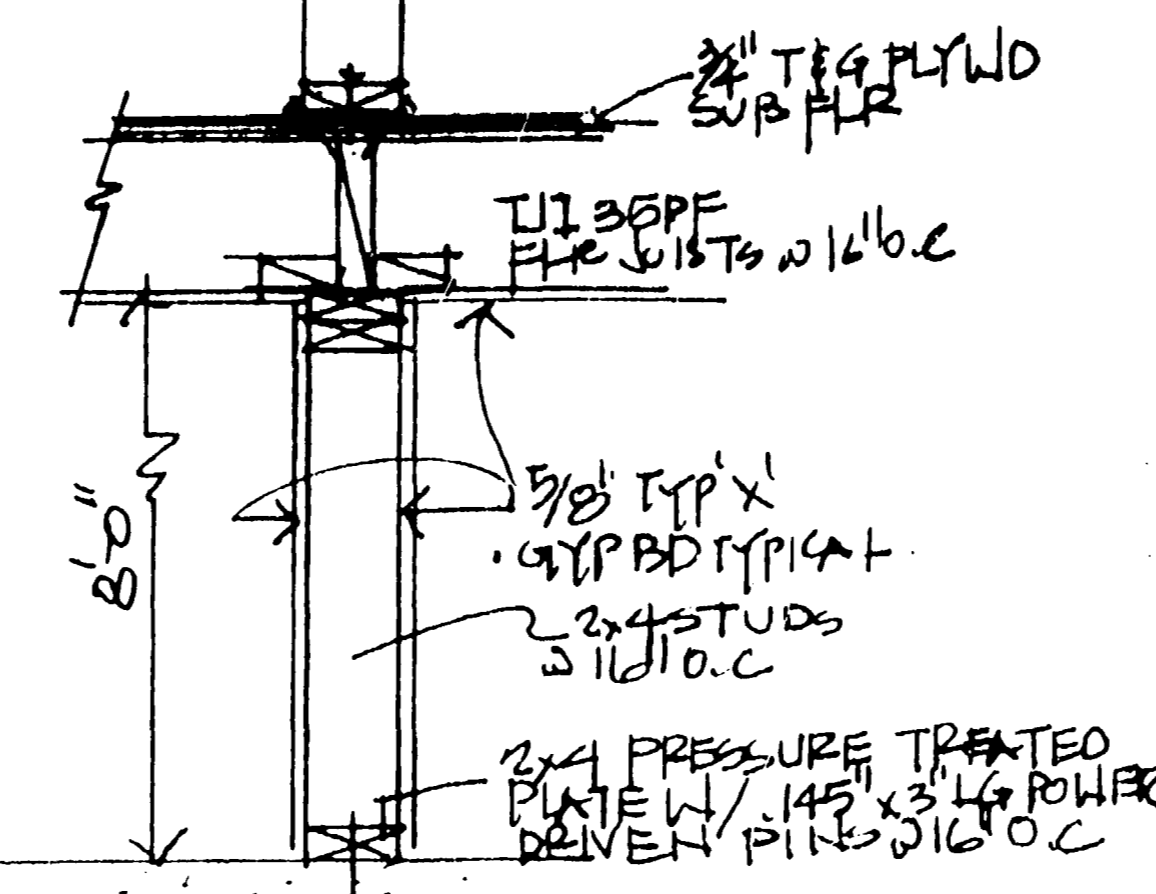 3/4" T&G PLYWD
SUB FLR
TJI 35PF
FLR JOISTS @ 16" O.C
8'-0"
5/8" TYP 'X'
GYP BD TYPICAL
2x4 STUDS
@ 16" O.C
2x4 PRESSURE TREATED
PLATE W/ .145" x 3" LG POWER
DRIVEN PINS @ 16" O.C